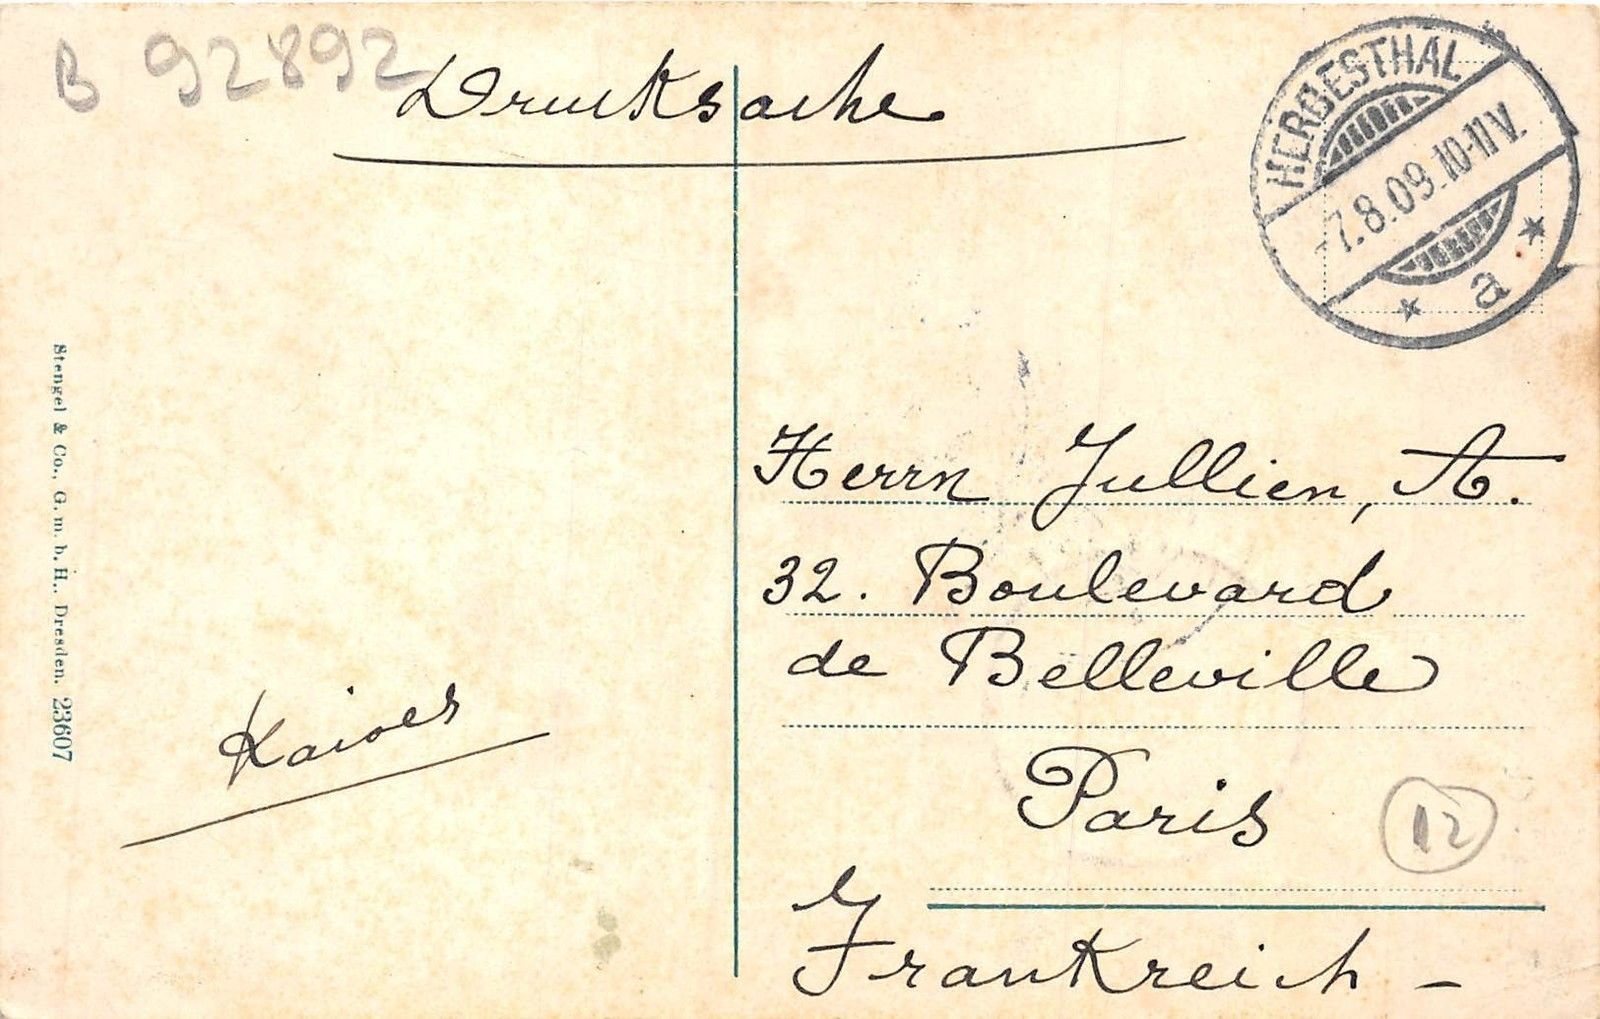 B 92892
Drucksache
HERBESTHAL
-7.8.09.10-11V.
* a *
Herrn Jullien, A.
32. Boulevard
de Belleville
Paris
12
Frankreich -
Stengel & Co., G. m. b. H., Dresden. 23607